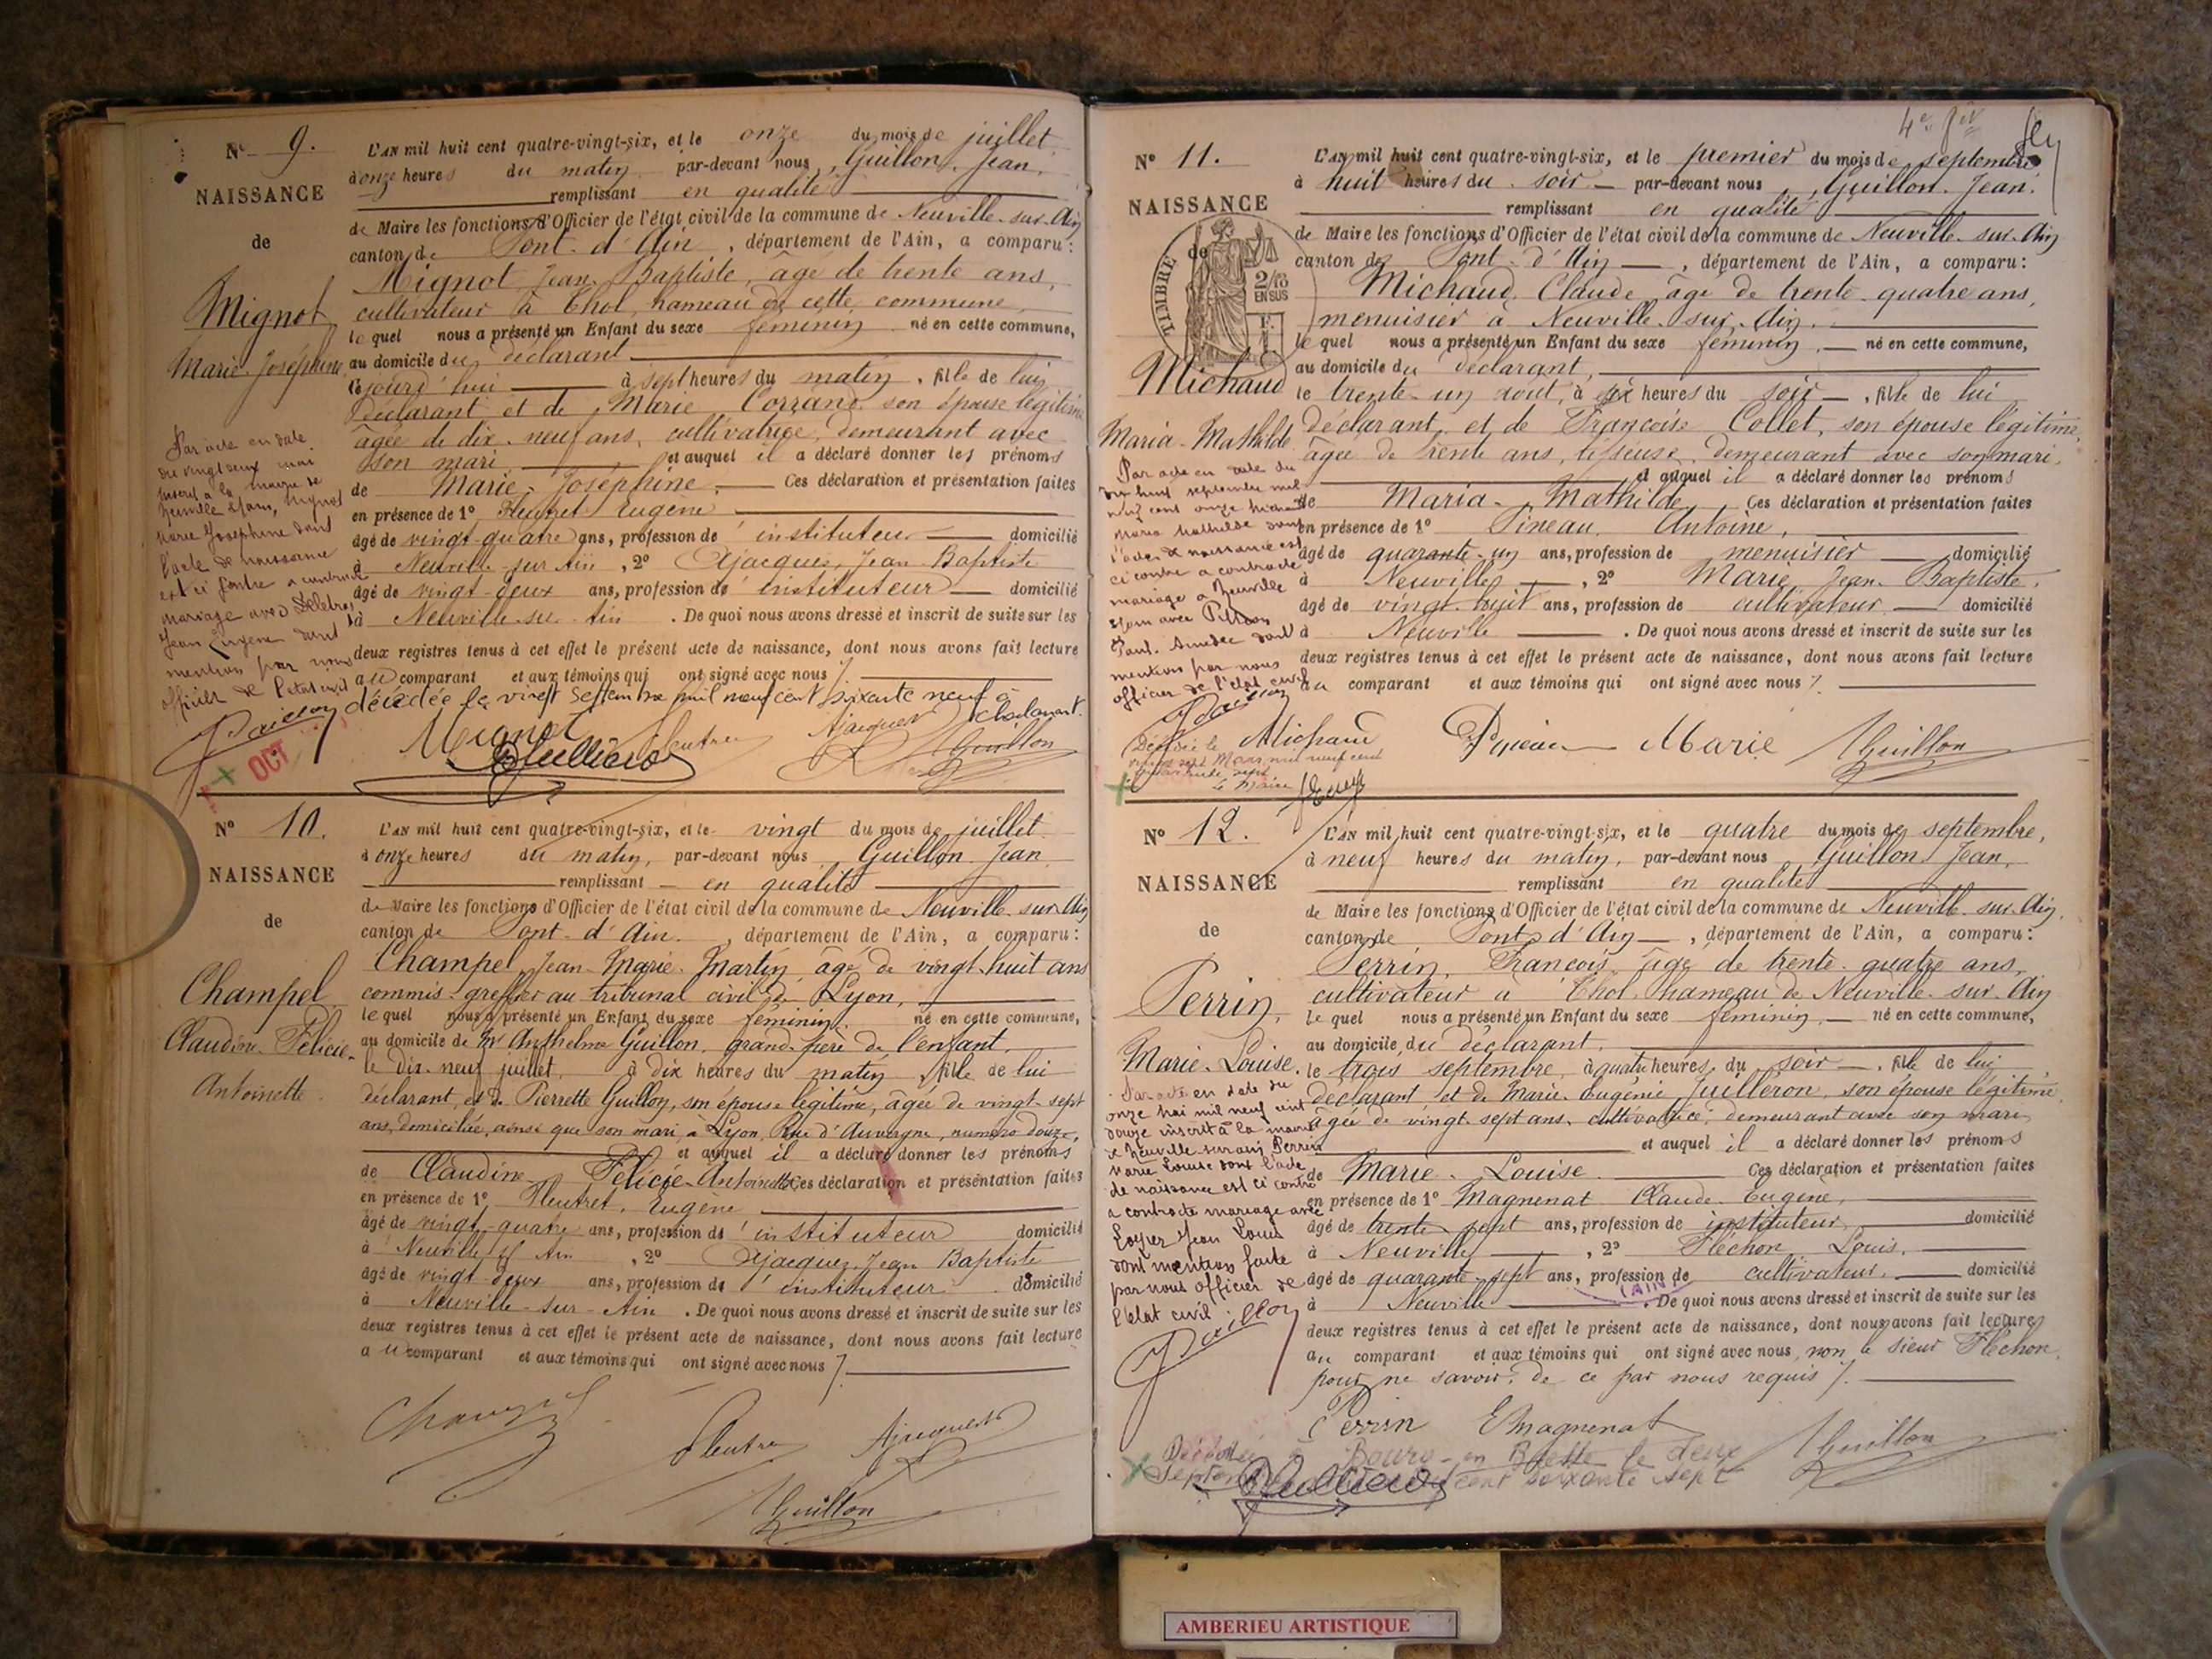 N° 9.
NAISSANCE
de
Mignot
Marie-Joséphine
L'AN mil huit cent quatre-vingt-six, et le onze du mois de juillet
à onze heures du matin par-devant nous, Guillon, Jean,
remplissant en qualité
de Maire les fonctions d'Officier de l'état civil de la commune de Neuville-sur-Ain
canton de Pont-d'Ain, département de l'Ain, a comparu:
Mignot Jean Baptiste, âgé de trente ans,
cultivateur à Thol, hameau de cette commune,
le quel nous a présenté un Enfant du sexe féminin né en cette commune,
au domicile du déclarant
le jourd'hui à sept heures du matin, fille de lui
déclarant et de Marie Corrand son épouse légitime
âgée de dix-neuf ans, cultivatrice, demeurant avec
son mari et auquel il a déclaré donner les prénoms
de Marie-Joséphine. Ces déclaration et présentation faites
en présence de 1° Fleutret Eugène
âgé de vingt-quatre ans, profession d'instituteur domicilié
à Neuville-sur-Ain, 2° Ajacques, Jean Baptiste
âgé de vingt-deux ans, profession d'instituteur domicilié
à Neuville-sur-Ain. De quoi nous avons dressé et inscrit de suite sur les
deux registres tenus à cet effet le présent acte de naissance, dont nous avons fait lecture
au comparant et aux témoins qui ont signé avec nous ./.
décédée le vingt septembre mil neuf cent soixante neuf à
Par acte en date
du vingt deux mai
inscrit à la mairie de
Neuville s/ain, Mignot
Marie Joséphine dont
l'acte de naissance
est ci contre a contracté
mariage avec
Jean Eugène dont
mention par nous
officier de l'état civil
OCT
Mignot Guillon
N° 10.
NAISSANCE
de
Champel
Claudine-Félicie-
Antoinette.
L'AN mil huit cent quatre-vingt-six, et le vingt du mois de juillet
à onze heures du matin, par-devant nous Guillon Jean
remplissant en qualité
de Maire les fonctions d'Officier de l'état civil de la commune de Neuville-sur-Ain
canton de Pont-d'Ain, département de l'Ain, a comparu:
Champel Jean-Marie-Martin âgé de vingt-huit ans
commis-greffier au tribunal civil de Lyon,
le quel nous a présenté un Enfant du sexe féminin, né en cette commune,
au domicile de Mr Anthelme Guillon, grand-père de l'enfant,
le dix-neuf juillet, à dix heures du matin, fille de lui
déclarant, et de Pierrette Guillon, son épouse légitime, âgée de vingt-sept
ans, domiciliée, ainsi que son mari, à Lyon, Rue d'Auvergne, numéro douze,
et auquel il a déclaré donner les prénoms
de Claudine-Félicie-Antoinette Ces déclaration et présentation faites
en présence de 1° Fleutret, Eugène
âgé de vingt-quatre ans, profession d'instituteur domicilié
à Neuville s/ Ain, 2° Ajacques Jean Baptiste
âgé de vingt-deux ans, profession d'instituteur domicilié
à Neuville-sur-Ain. De quoi nous avons dressé et inscrit de suite sur les
deux registres tenus à cet effet le présent acte de naissance, dont nous avons fait lecture
au comparant et aux témoins qui ont signé avec nous ./.
Guillon
N° 11.
NAISSANCE
de
TIMBRE
2/10
EN SUS
Michaud
Maria-Mathilde
L'AN mil huit cent quatre-vingt-six, et le premier du mois de septembre
à huit heures du soir par-devant nous, Guillon Jean.
remplissant en qualité
de Maire les fonctions d'Officier de l'état civil de la commune de Neuville-sur-Ain
canton de Pont-d'Ain, département de l'Ain, a comparu:
Michaud, Claude âgé de trente-quatre ans,
menuisier à Neuville-sur-Ain.
le quel nous a présenté un Enfant du sexe féminin, né en cette commune,
au domicile du déclarant,
le trente-un août, à six heures du soir, fille de lui
déclarant et de Françoise Collet, son épouse légitime,
âgée de trente ans, tisseuse, demeurant avec son mari,
et auquel il a déclaré donner les prénoms
de Maria-Mathilde Ces déclaration et présentation faites
en présence de 1° Pineau, Antoine,
âgé de quarante-un ans, profession de menuisier domicilié
à Neuville, 2° Marie, Jean-Baptiste,
âgé de vingt-huit ans, profession de cultivateur domicilié
à Neuville. De quoi nous avons dressé et inscrit de suite sur les
deux registres tenus à cet effet le présent acte de naissance, dont nous avons fait lecture
au comparant et aux témoins qui ont signé avec nous ./.
Par acte en date du
dix huit septembre mil
neuf cent onze Michaud
Maria Mathilde dont
l'acte de naissance est
ci contre a contracté
mariage à Neuville
s/ain avec
Paul Amédée dont
mention par nous
officier de l'état civil
Michaud Marie Guillon
Décédée le
vingt sept Mars mil neuf cent
quarante sept
le Maire
N° 12.
NAISSANCE
de
Perrin,
Marie-Louise.
L'AN mil huit cent quatre-vingt-six, et le quatre du mois de septembre,
à neuf heures du matin, par-devant nous Guillon Jean,
remplissant en qualité
de Maire les fonctions d'Officier de l'état civil de la commune de Neuville-sur-Ain,
canton de Pont-d'Ain, département de l'Ain, a comparu:
Perrin, François, âgé de trente-quatre ans,
cultivateur à Thol, hameau de Neuville-sur-Ain
le quel nous a présenté un Enfant du sexe féminin, né en cette commune,
au domicile du déclarant,
le trois septembre, à quatre heures du soir, fille de lui
déclarant et de Marie-Eugénie Juilleron, son épouse légitime,
âgée de vingt-sept ans, cultivatrice, demeurant avec son mari,
et auquel il a déclaré donner les prénoms
de Marie-Louise Ces déclaration et présentation faites
en présence de 1° Magnenat Claude-Eugène,
âgé de trente-sept ans, profession de instituteur, domicilié
à Neuville, 2° Fléchon, Louis,
âgé de quarante-sept ans, profession de cultivateur, domicilié
(AIN)
à Neuville. De quoi nous avons dressé et inscrit de suite sur les
deux registres tenus à cet effet le présent acte de naissance, dont nous avons fait lecture
au comparant et aux témoins qui ont signé avec nous, non le sieur Fléchon,
pour ne savoir, de ce par nous requis ./.
Par acte en date du
onze mai mil neuf cent
douze inscrit à la mairie
de Neuville sur ain, Perrin
Marie Louise dont l'acte
de naissance est ci contre
a contracté mariage avec
Loyer Jean Louis
dont mention faite
par nous officier de
l'état civil
Perrin EMagnenat Guillon
Décédée à Bourg-en-Bresse le deux
septembre cent soixante sept
AMBERIEU ARTISTIQUE